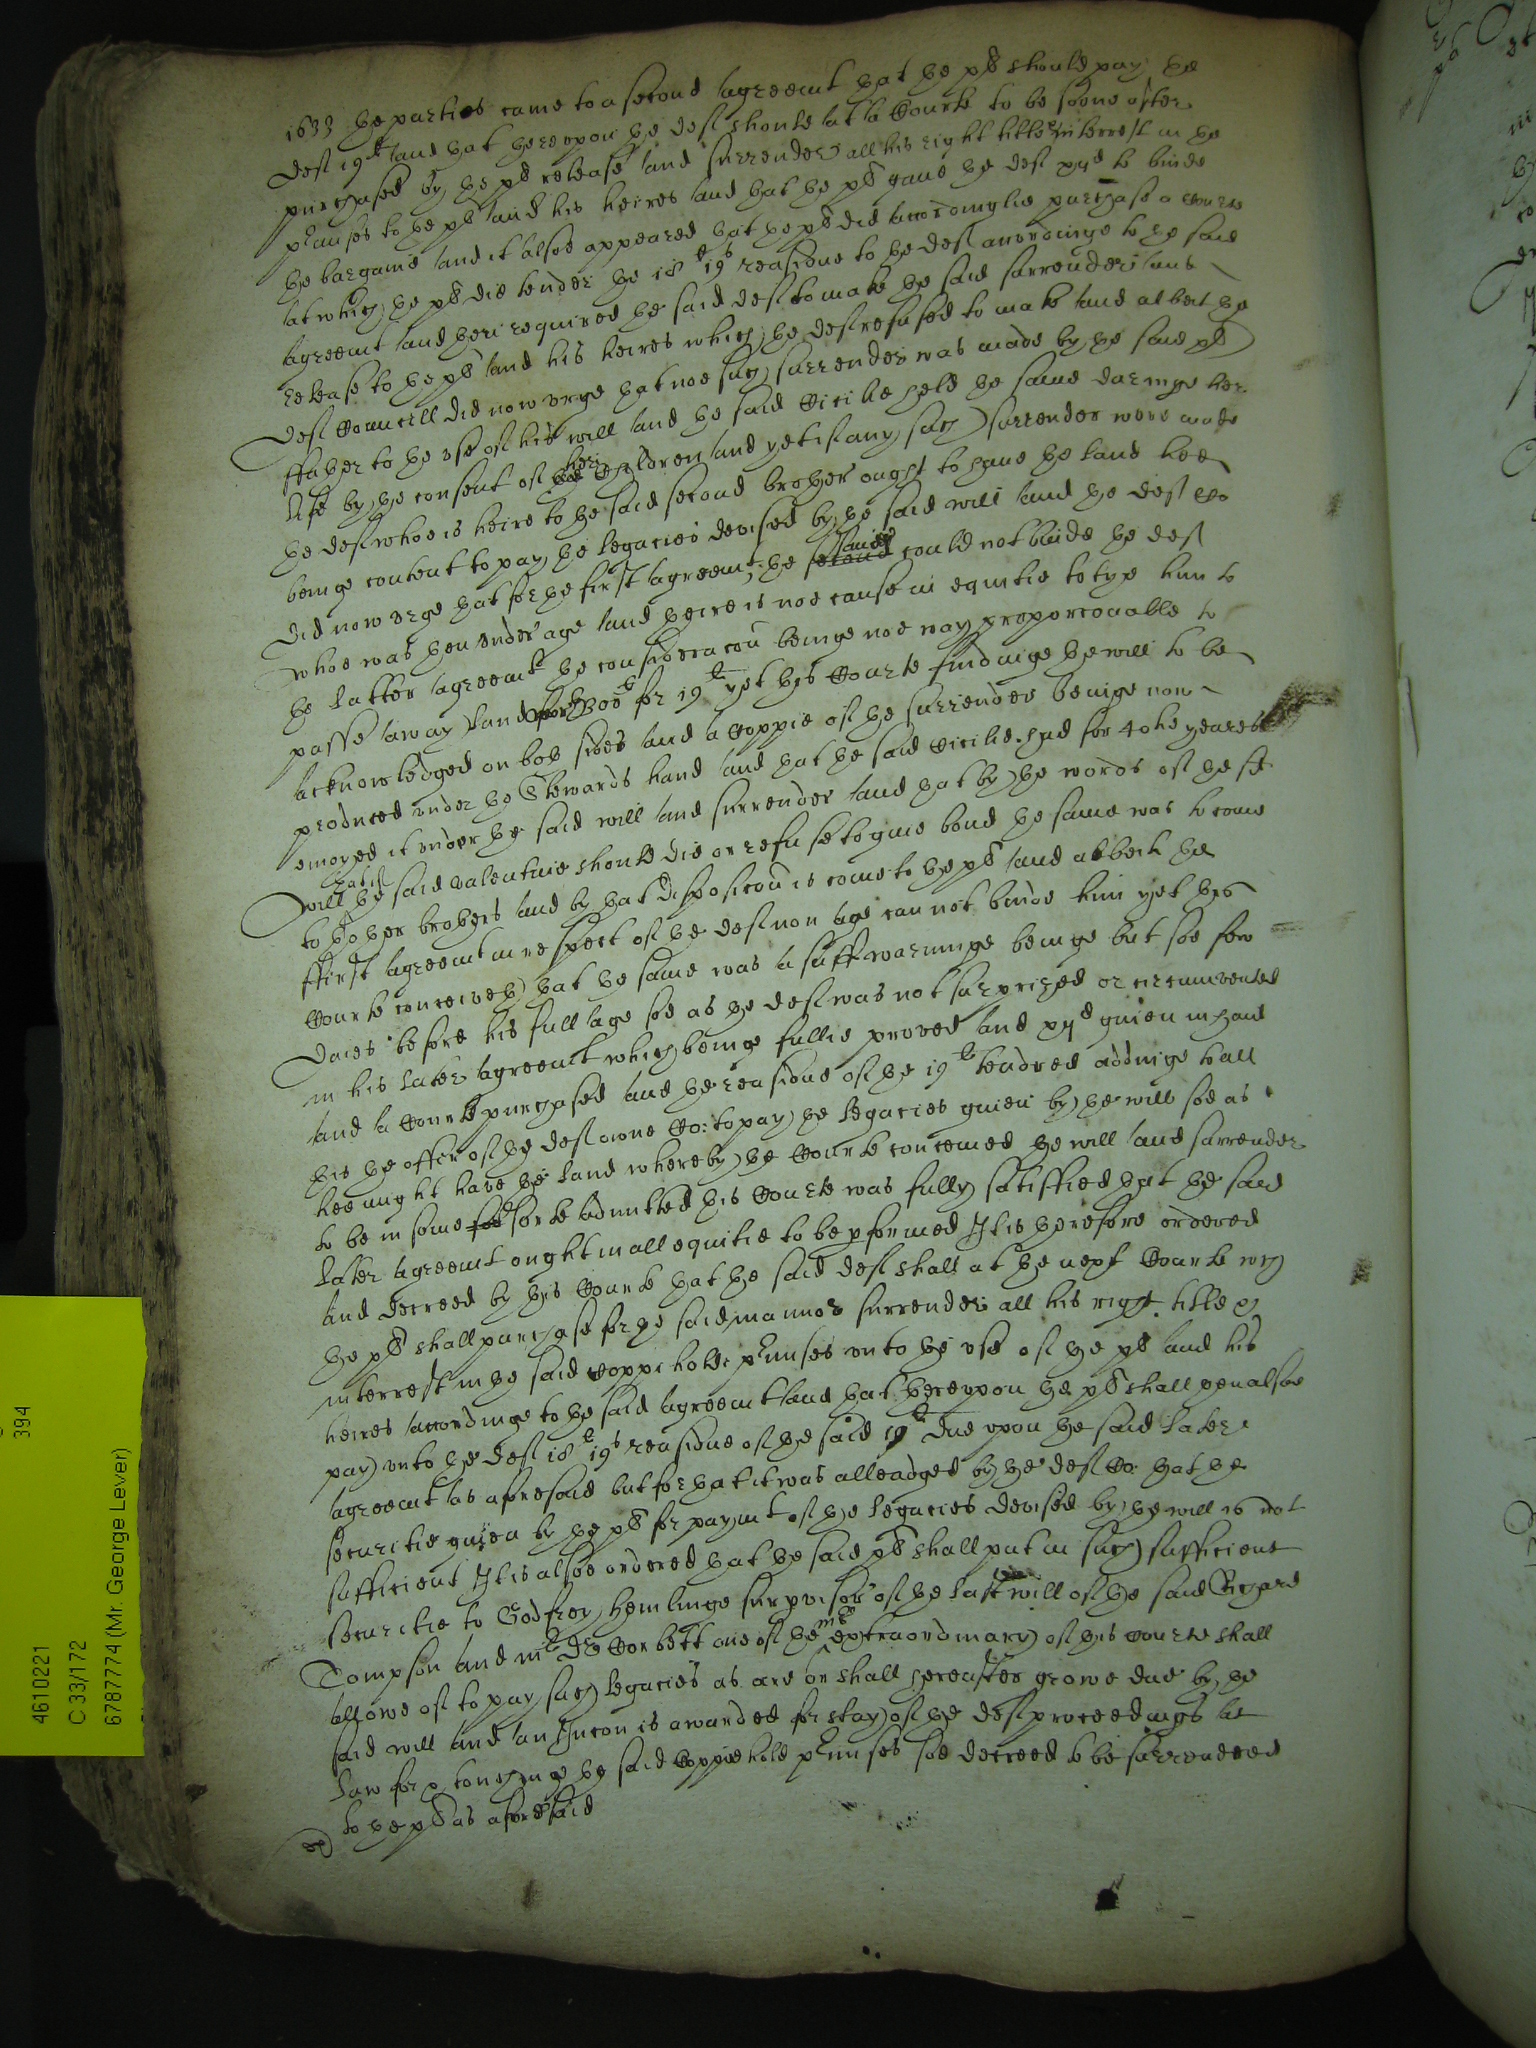 1633 the parties came to a second agreemt that the plt should pay the
deft 19li and that thereupon the deft should at a Courte to be soone after
purchased by the plt release and surrender all his right title & interrest in the
premisses to the plt and his heires and that the plt gaue the deft xijd to binde
the bargaine and it alsoe appeared that the plt did accordinglie purchase a Courte
at which the plt did tender the 18li 19s residue to the deft accordinge to the said
agreemt and then required the said deft to make the said surrender and
release to the plt and his heires which the deft refused to make and albeit the
deft Councell did now vrge that noe such surrender was made by the said plt
ffather to the vse of his will and the said Cicilie held the same duringe her
life by the consent of her Children and yet if any such surrender were made
the deft whoe is heire to the said second brother ought to haue the land hee
beinge content to pay the legacies devised by the said will and the deft Co
did now vrge that for the first agreemt the same could not binde the deft
whoe was then vnder age and there is noe cause in equitie to tye him to
the latter agreemt the consideracon beinge noe way proporconable to
passe away land worth 200li for 19li yet this Courte findinge the will to be
acknowledged on both sides and a Coppie of the surrender beinge now
produced vnder the Stewards hand and that the said Cicilie had for 40tie yeares
enioyed it vnder the said will and surrender and that by the words of the sd
will if the said Valentine should die or refuse to giue bond the same was to come
to thother brothers and by that disposicon is come to the plt and albeit the
ffirst agreemt in respect of the defts non age can not binde him yet this
Courte conceiveth that the same was a suff warninge beinge but soe few
daies before his full age soe as the deft was not surprized or circumvented
in his later agreemt which beinge fullie proved and xijd giuen in hand
and a Courte purchased and the residue of the 19li tendred addinge to all
this the offer of the defts owne Co: to pay the legacies giuen by the will soe as
hee might have the land whereby the Courte conceived the will and surrender
to be in some sorte admitted this Courte was fully satisffied that the said
later agreemt ought in all equitie to be pformed It is therefore ordered
and decreed by this Courte that the said deft shall at the next Courte wch
the plt shall purchase for the said mannor surrender all his right title &
interrest in the said Coppiehold premisses vnto the vse of the plt and his
heires accordinge to the said agreemt and that therevpon the plt shall then alsoe
pay vnto the deft 18li 19s residue of the said 19li due vpon the said later
agreemt as aforesaid but for that it was alleadged by the defts Co: that the
securitie giuen by the plt for paymt of the legacies devised by the will is not
sufficient It is alsoe ordered that the said plt shall put in such sufficient
securitie to Godfrey Hemlinge surpvisor of the last will of the said Richard
Tompson and mr Dr Corbett one of the mrs extraordinary of this Courte shall
allowe of to pay such legacies as are or shall hereafter growe due by the
said will and an Iniuncon is awarded for stay of the defts proceedings at
law for & touchinge the said Coppiehold premisses soe decreed to be surrendred
to the plt as aforesaid
394
4610221
C 33/172
6787774 (Mr. George Lever)